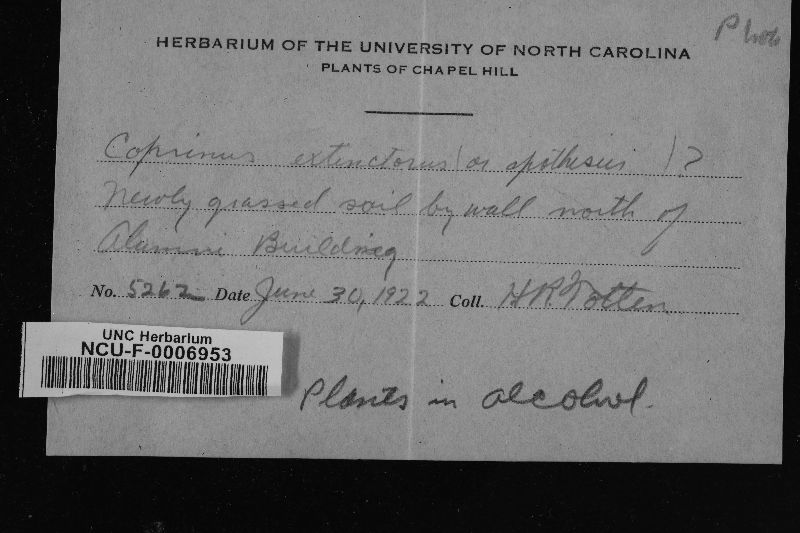 Phot
HERBARIUM OF THE UNIVERSITY OF NORTH CAROLINA
PLANTS OF CHAPEL HILL
Coprinus extinctorius (or apothesius )?
Newly grassed soil by wall north of
Alumni Building
No. 5262 Date June 30, 1922 Coll. H R Totten
UNC Herbarium
NCU-F-0006953
Plants in alcohol.